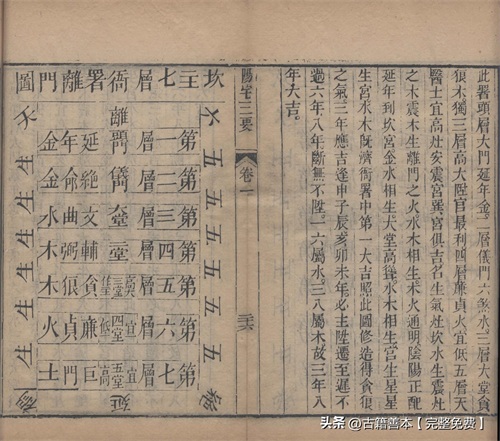 此署頭層大門延年金二層儀門六煞水三層大堂貪
狼木獨三層高大陞官最利四層廉貞火宜低五層天
醫土宜高灶安震宮巽宮俱吉名生氣灶坎水生震灶
之木震木生離門之火水木相生木火通明陰陽正配
延年到坎宮金水相生大堂高水木相生宮生星星
生宮水木既濟衙署中第一大吉照此圖修造得貪狼
之氣三年應吉逢申子辰亥卯未年必主陞遷至遲不
過六年八年斷無不陞一六屬水三八屬木故三年八
年大吉。
陽宅三要
卷一
坎主七層衙署離門圖
五五五五五五五
第一層離門延年金
第二層儀絕命金
第三層大堂文曲水
第四層二堂輔弼木
第五層三堂貪狼木
第六層宜四堂低廉貞火
第七層宜五堂高巨門土
生生生生生生生
延
头条@古籍善本【完整免费】